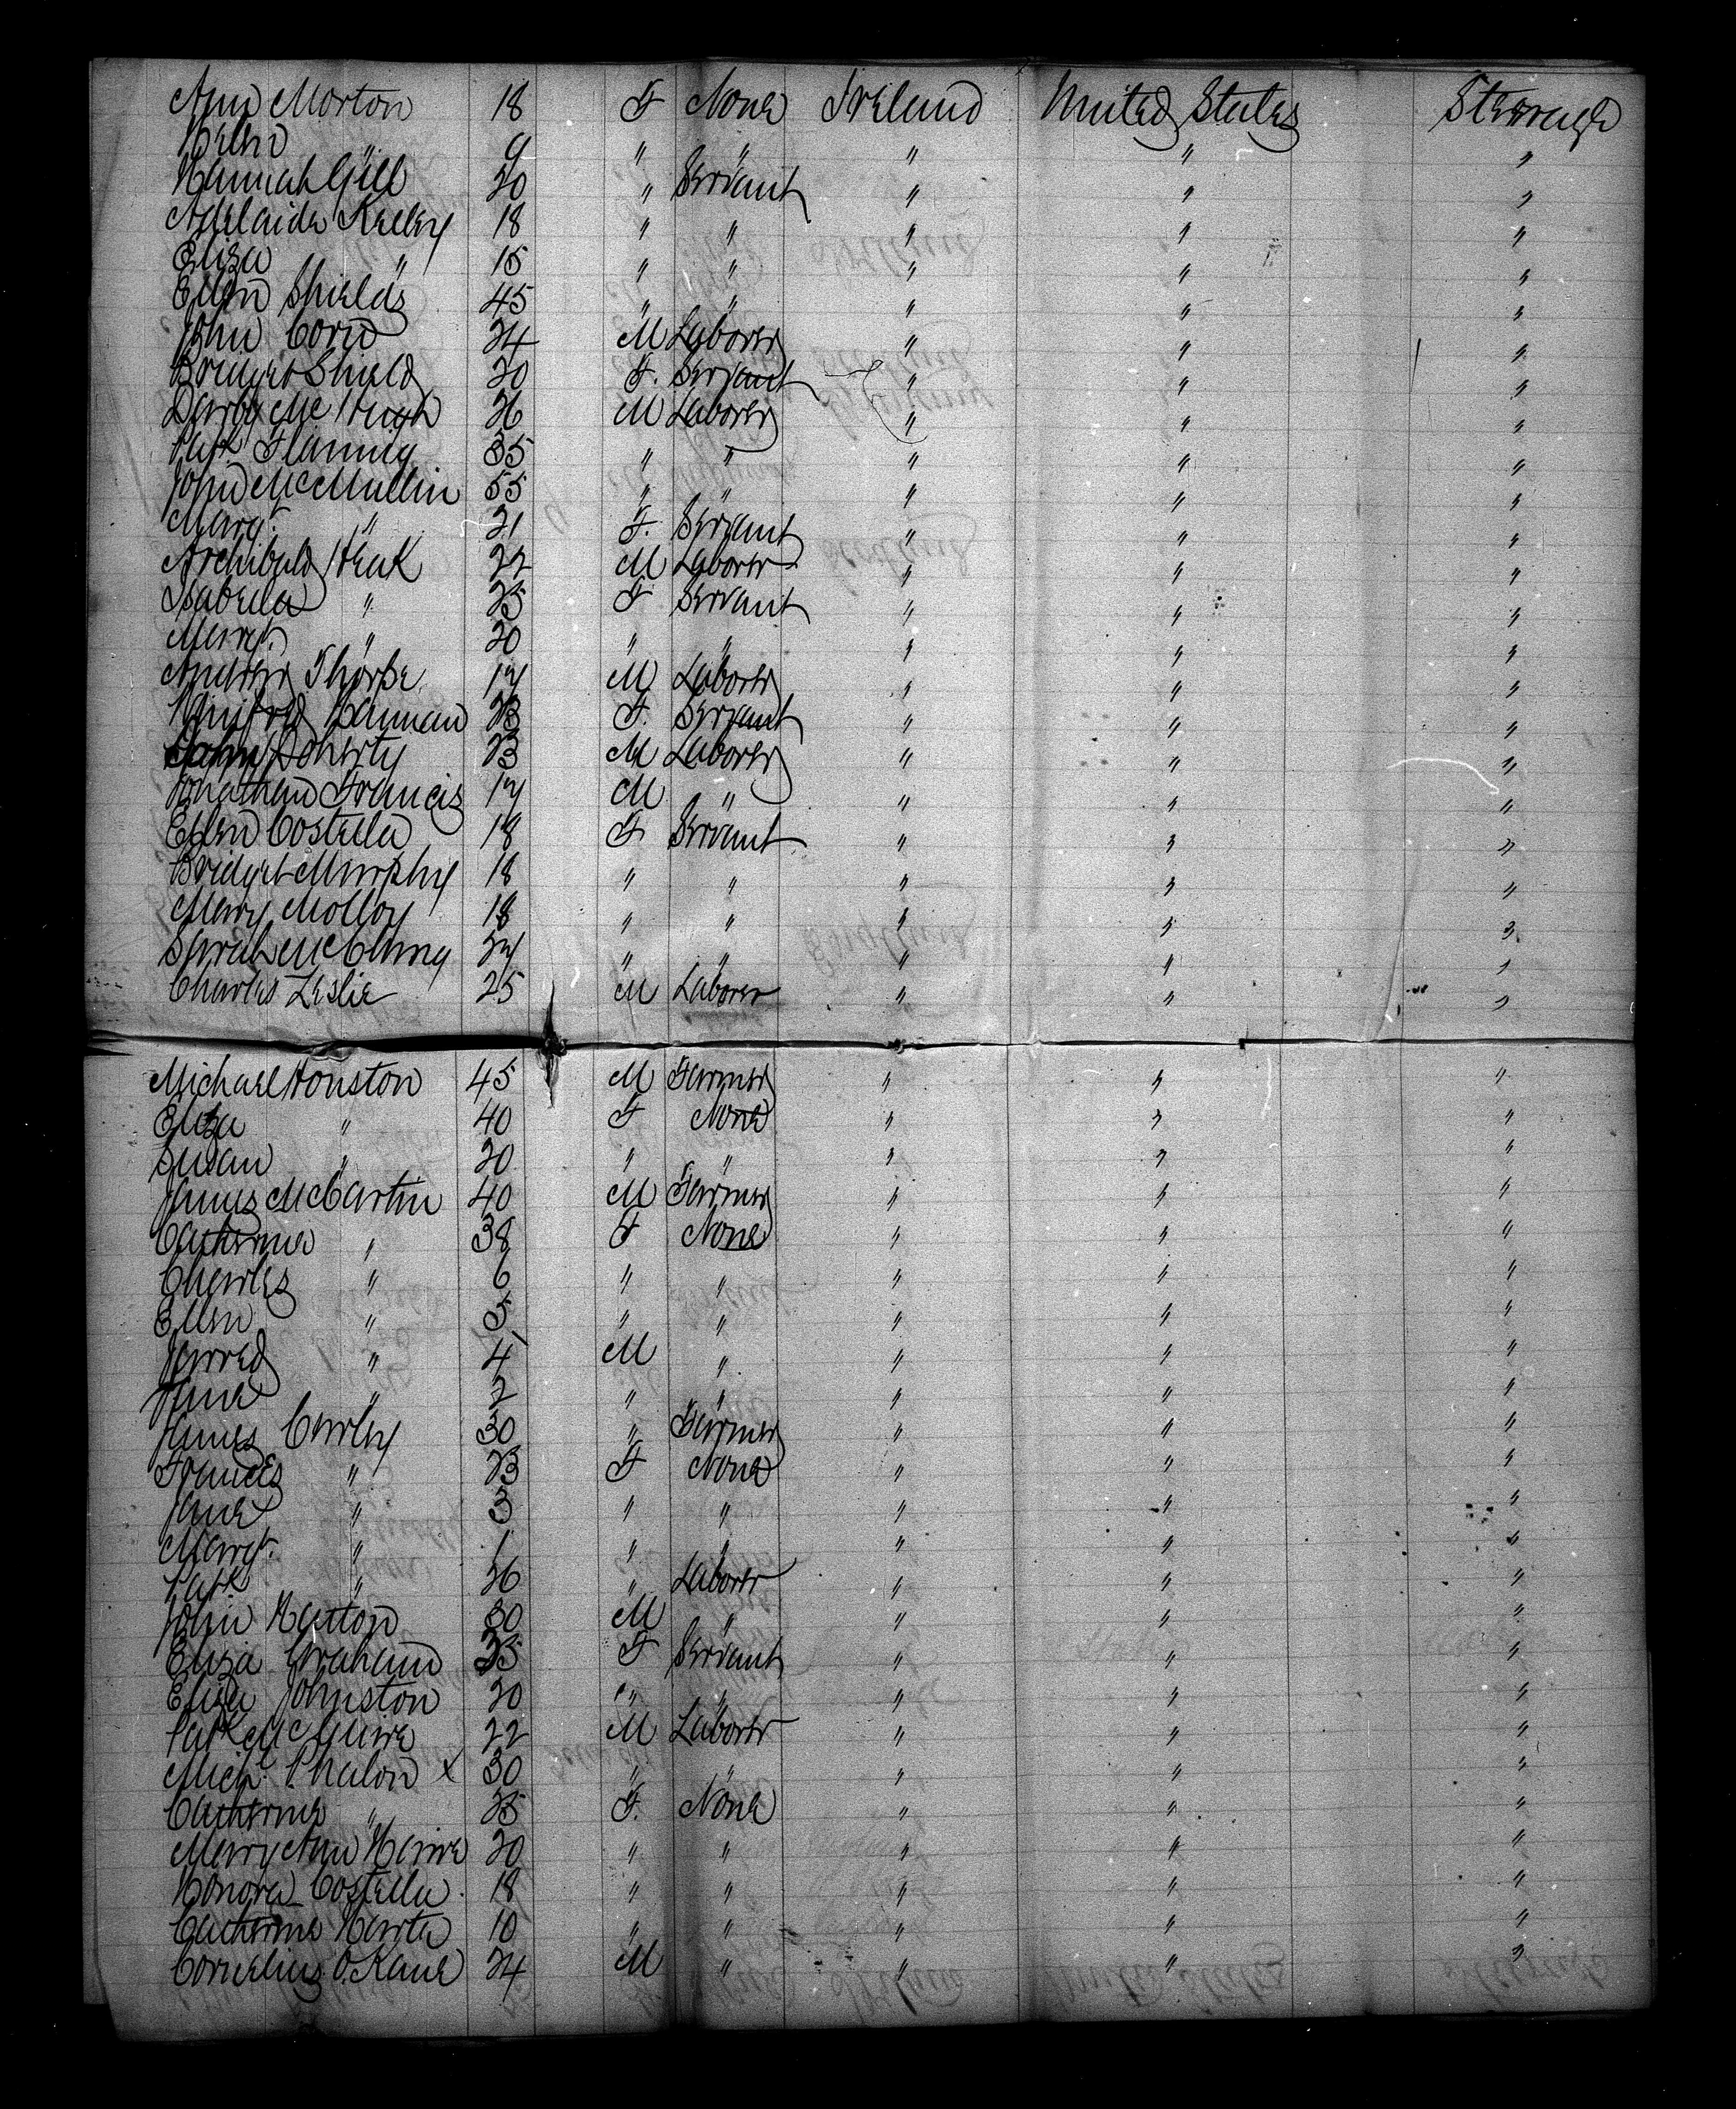 Ann Morton 18 F None Ireland United States Steerage
Ellen " 9 " " " " "
Hannah Gill 20 " Servant " " "
Adelaide Kelley 18 " " " " "
Eliza " 15 " " " " "
Ellen Shields 45 " " " " "
John 24 M Laborer " " "
Bridget Shield 20 F. Servant " " "
Darby McHugh 26 M Laborer " " "
Patk Flannery 35 " " " " "
John McMullin 55 " " " " "
Margt. " 21 F. Servant " " "
Archibald 22 M Laborer " " "
Isabella " 25 F Servant " " "
Margt. " 20 " " " " "
Andrew Thorpe 17 M Laborer " " "
Winifred Hannan 23 F. Servant " " "
John Doherty 23 M Laborer " " "
Jonathan Francis 17 M " " " "
Ellen Costella 18 F Servant " " "
Bridget Murphy 18 " " " " "
Mary Molloy 18 " " " " "
Sarah McClung 27 " " " " "
Charles Leslie 25 M Laborer " " "
Michael Houston 45 M Farmer " " "
Eliza " 40 F None " " "
Susan " 20 " " " " "
James McCartin 40 M Farmer " " "
Catherine " 38 F None " " "
Charles " 6 " " " " "
Ellen " 5 " " " " "
Jarred " 4 M " " " "
Jane " 2 " " " " "
James Curley 30 " Farmer " " "
Frances " 23 F None " " "
Jane " 3 " " " " "
Margt. " 1 " " " " "
Patk " 26 " Laborer " " "
John 30 M " " " "
Eliza Graham 25 F Servant " " "
Eliza Johnston 20 " " " " "
Patk McGuire 22 M Laborer " " "
Michl. Phalon x 30 " " " " "
Catherine " 25 F. None " " "
Mary Ann 20 " " " " "
Honora Costella 18 " " " " "
Catherine Harte 10 " " " " "
Cornelius O.Kane 24 M " " " "